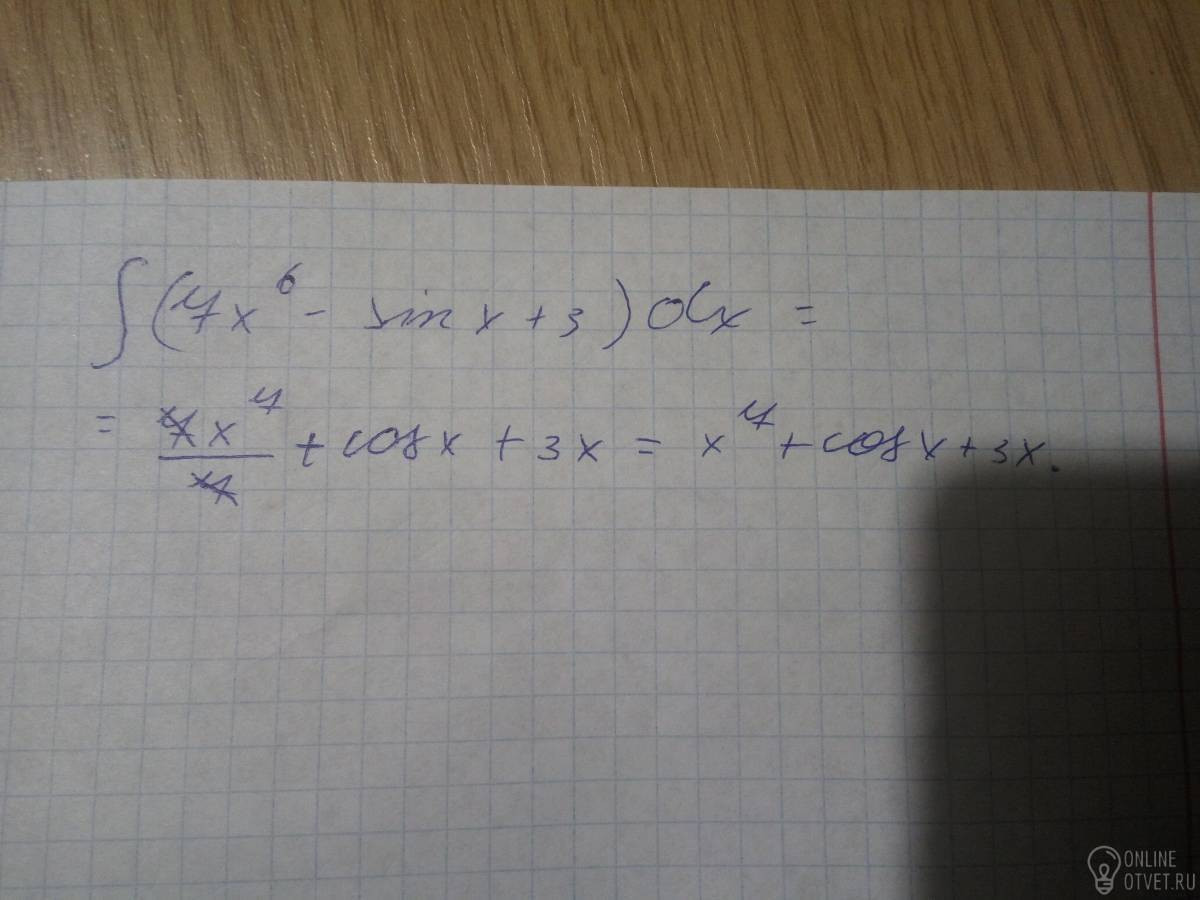 ∫(7x⁶ - sin x + 3) dx =
= 7x⁷/7 + cos x + 3x = x⁷ + cos x + 3x.
ONLINE
OTVET.RU